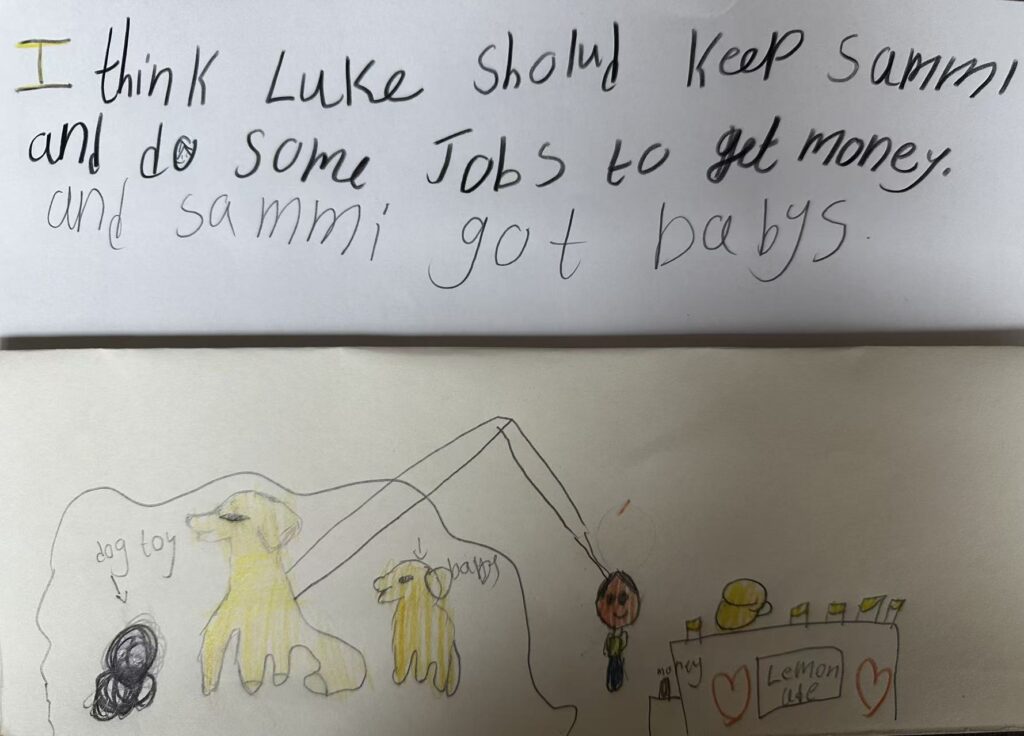 I think Luke sholud keep sammi
and do some Jobs to get money.
and sammi got babys.
dog toy
babys
money
Lemon
ade